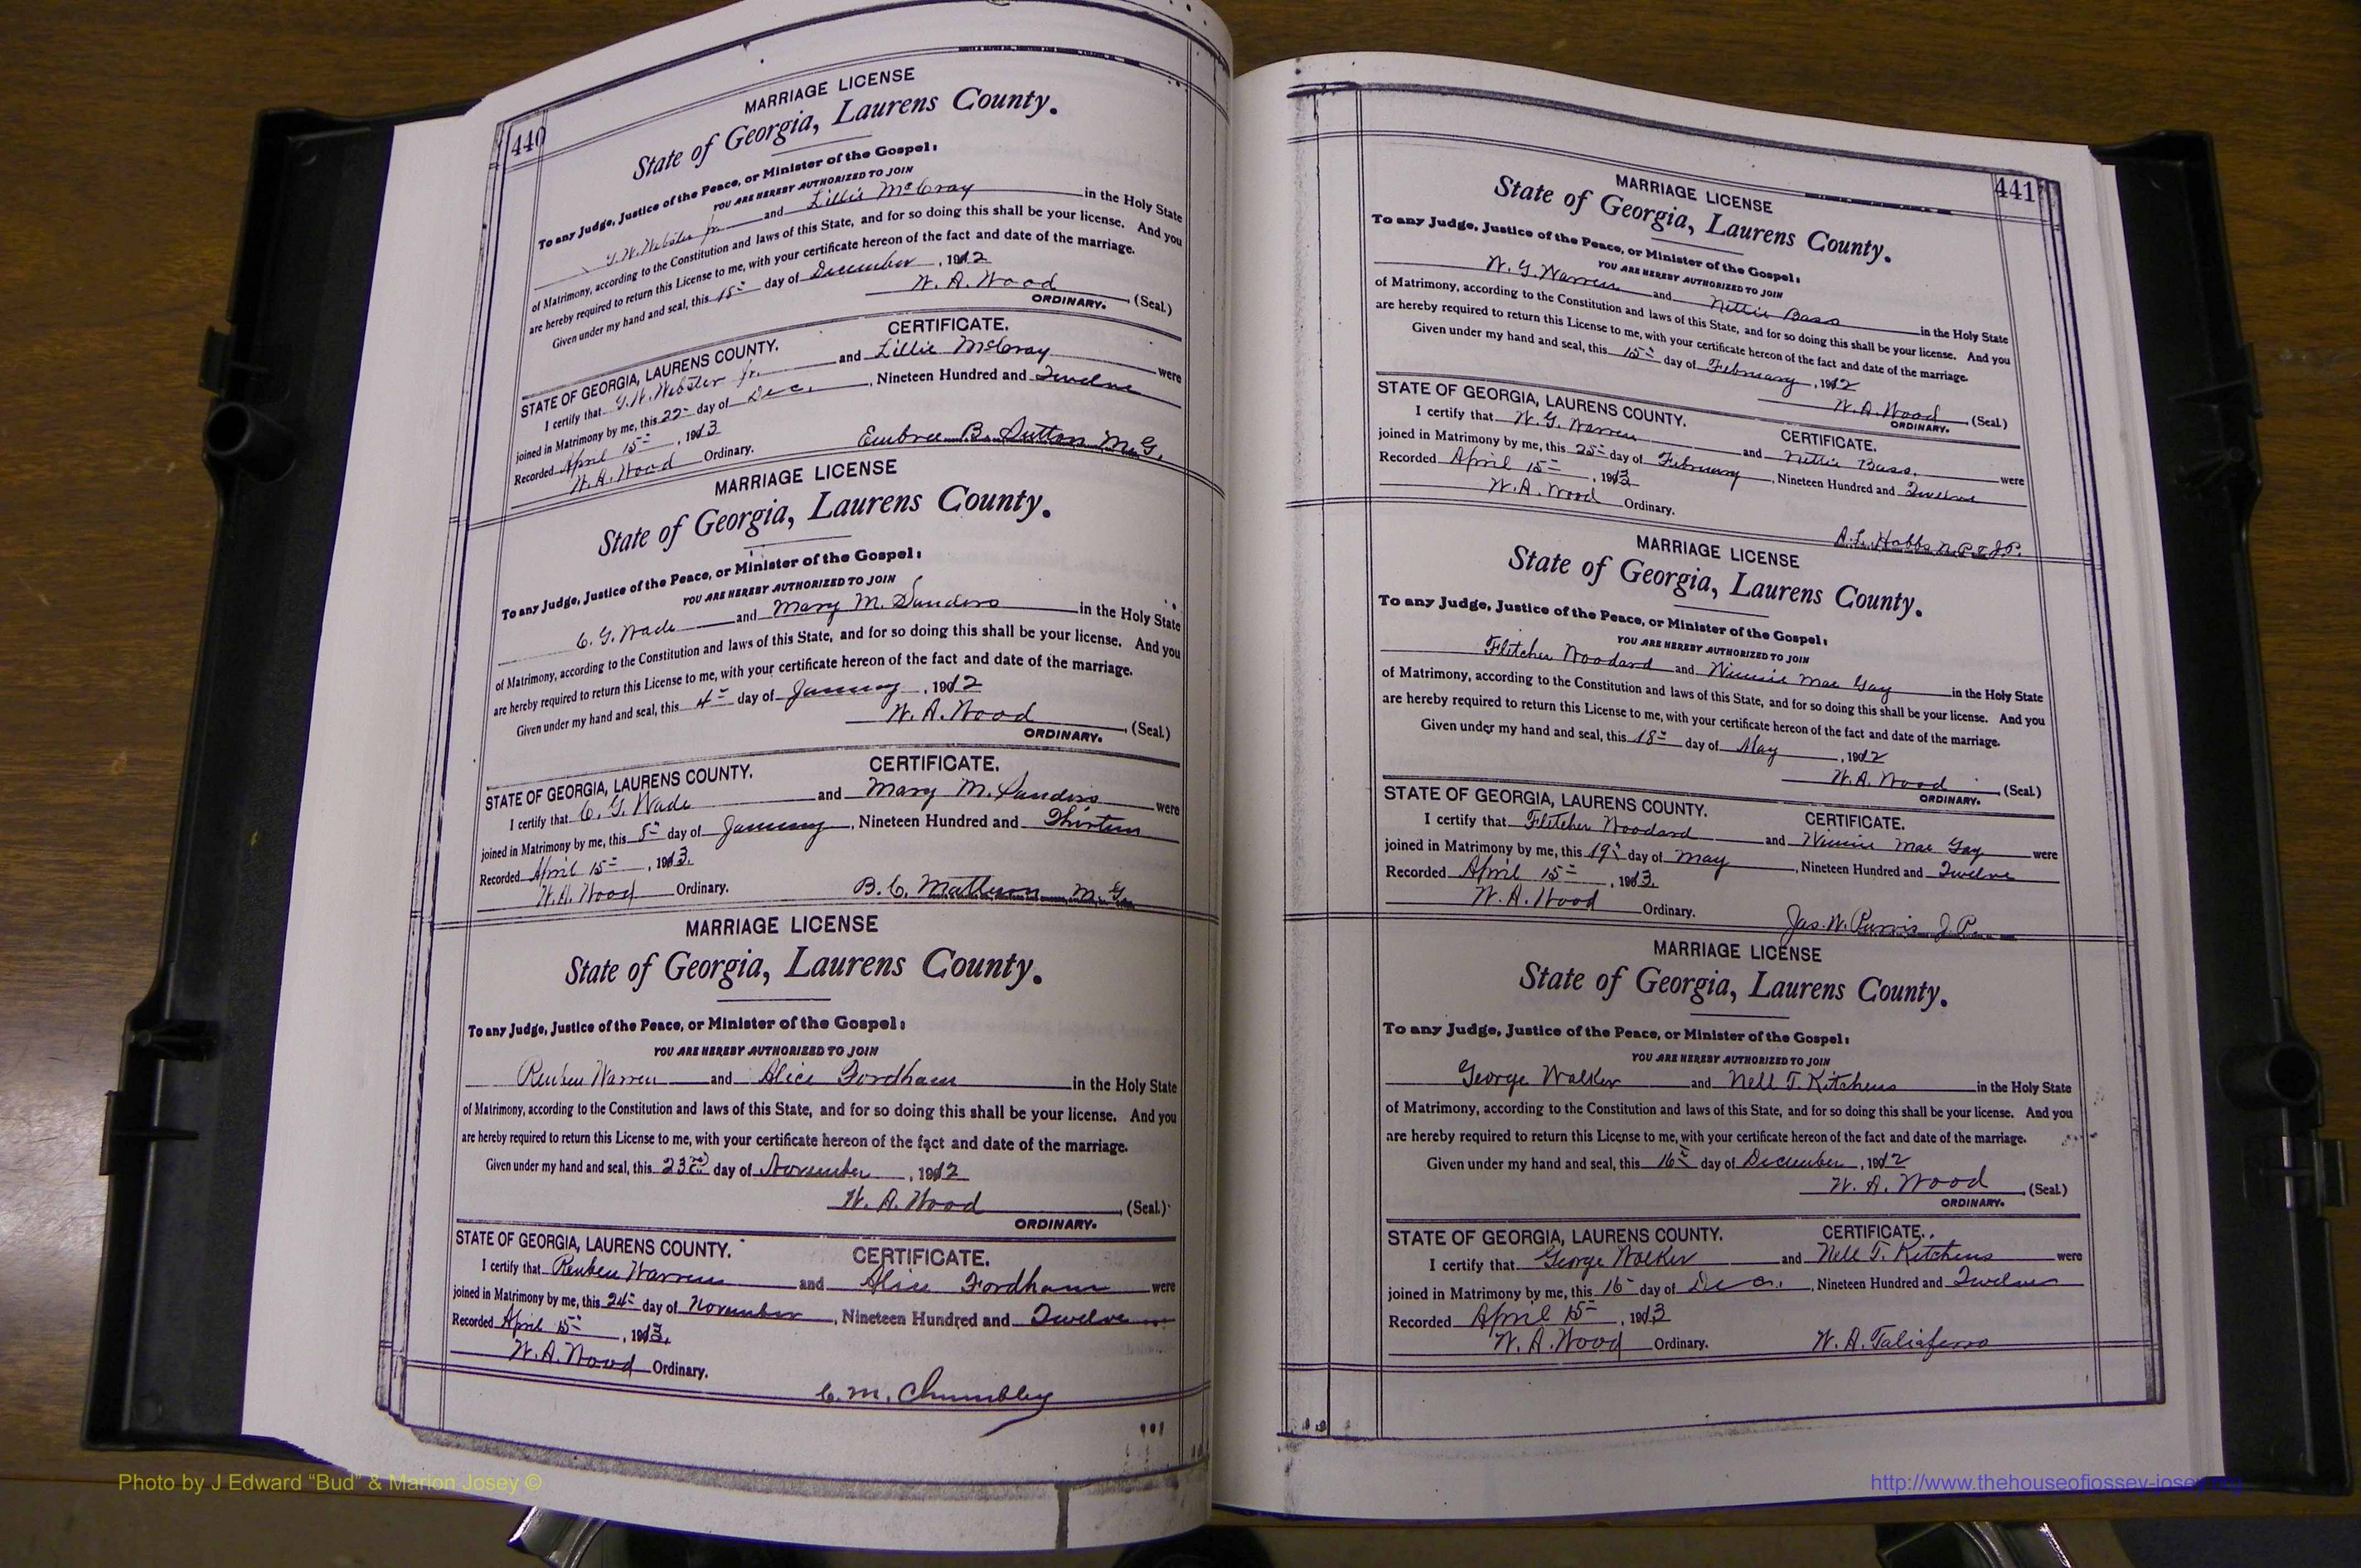 440
MARRIAGE LICENSE
State of Georgia, Laurens County.
To any Judge, Justice of the Peace, or Minister of the Gospel:
YOU ARE HEREBY AUTHORIZED TO JOIN
G. W. Webster Jr. and Lillie McCray in the Holy State
of Matrimony, according to the Constitution and laws of this State, and for so doing this shall be your license. And you
are hereby required to return this License to me, with your certificate hereon of the fact and date of the marriage.
Given under my hand and seal, this 15 day of December, 1912
W. A. Wood (Seal.)
ORDINARY.
CERTIFICATE.
STATE OF GEORGIA, LAURENS COUNTY.
I certify that G. W. Webster Jr. and Lillie McCray were
joined in Matrimony by me, this 22 day of Dec., Nineteen Hundred and Twelve
Recorded April 15, 1913
W. A. Wood Ordinary.
Embree B. Sutton M.G.
MARRIAGE LICENSE
State of Georgia, Laurens County.
To any Judge, Justice of the Peace, or Minister of the Gospel:
YOU ARE HEREBY AUTHORIZED TO JOIN
C. G. Wade and Mary M. Sanders in the Holy State
of Matrimony, according to the Constitution and laws of this State, and for so doing this shall be your license. And you
are hereby required to return this License to me, with your certificate hereon of the fact and date of the marriage.
Given under my hand and seal, this 4 day of January, 1912
W. A. Wood (Seal.)
ORDINARY.
CERTIFICATE.
STATE OF GEORGIA, LAURENS COUNTY.
I certify that C. G. Wade and Mary M. Sanders were
joined in Matrimony by me, this 5 day of January, Nineteen Hundred and Thirteen
Recorded April 15, 1913.
W. A. Wood Ordinary.
B. C. M.G.
MARRIAGE LICENSE
State of Georgia, Laurens County.
To any Judge, Justice of the Peace, or Minister of the Gospel:
YOU ARE HEREBY AUTHORIZED TO JOIN
Reuben Warren and Alice Fordham in the Holy State
of Matrimony, according to the Constitution and laws of this State, and for so doing this shall be your license. And you
are hereby required to return this License to me, with your certificate hereon of the fact and date of the marriage.
Given under my hand and seal, this 23rd day of November, 1912
W. A. Wood (Seal.)
ORDINARY.
STATE OF GEORGIA, LAURENS COUNTY.
CERTIFICATE.
I certify that Reuben Warren and Alice Fordham were
joined in Matrimony by me, this 24 day of November, Nineteen Hundred and Twelve
Recorded April 15, 1913.
W. A. Wood Ordinary.
C. M. Chumbley
441
MARRIAGE LICENSE
State of Georgia, Laurens County.
To any Judge, Justice of the Peace, or Minister of the Gospel:
YOU ARE HEREBY AUTHORIZED TO JOIN
W. G. Warren and Nettie Bass in the Holy State
of Matrimony, according to the Constitution and laws of this State, and for so doing this shall be your license. And you
are hereby required to return this License to me, with your certificate hereon of the fact and date of the marriage.
Given under my hand and seal, this 15 day of February, 1912
W. A. Wood (Seal.)
ORDINARY.
STATE OF GEORGIA, LAURENS COUNTY.
CERTIFICATE.
I certify that W. G. Warren and Nettie Bass. were
joined in Matrimony by me, this 25 day of February, Nineteen Hundred and Twelve
Recorded April 15, 1913
W. A. Wood Ordinary.
A. L. Hobbs N.P. & J.P.
MARRIAGE LICENSE
State of Georgia, Laurens County.
To any Judge, Justice of the Peace, or Minister of the Gospel:
YOU ARE HEREBY AUTHORIZED TO JOIN
Fletcher Woodard and Winnie Mae Gay in the Holy State
of Matrimony, according to the Constitution and laws of this State, and for so doing this shall be your license. And you
are hereby required to return this License to me, with your certificate hereon of the fact and date of the marriage.
Given under my hand and seal, this 18 day of May, 1912
W. A. Wood (Seal.)
ORDINARY.
STATE OF GEORGIA, LAURENS COUNTY.
CERTIFICATE.
I certify that Fletcher Woodard and Winnie Mae Gay were
joined in Matrimony by me, this 19 day of May, Nineteen Hundred and Twelve
Recorded April 15, 1913.
W. A. Wood Ordinary.
Jas. W. Purvis J.P.
MARRIAGE LICENSE
State of Georgia, Laurens County.
To any Judge, Justice of the Peace, or Minister of the Gospel:
YOU ARE HEREBY AUTHORIZED TO JOIN
George Walker and Nell T. Kitchens in the Holy State
of Matrimony, according to the Constitution and laws of this State, and for so doing this shall be your license. And you
are hereby required to return this License to me, with your certificate hereon of the fact and date of the marriage.
Given under my hand and seal, this 16 day of December, 1912
W. A. Wood (Seal.)
ORDINARY.
STATE OF GEORGIA, LAURENS COUNTY.
CERTIFICATE.
I certify that George Walker and Nell T. Kitchens were
joined in Matrimony by me, this 16 day of Dec., Nineteen Hundred and Twelve
Recorded April 15, 1913
W. A. Wood Ordinary.
W. A. Taliaferro
Photo by J Edward "Bud" & Marion Josey ©
http://www.thehouseofjossey-josey.org